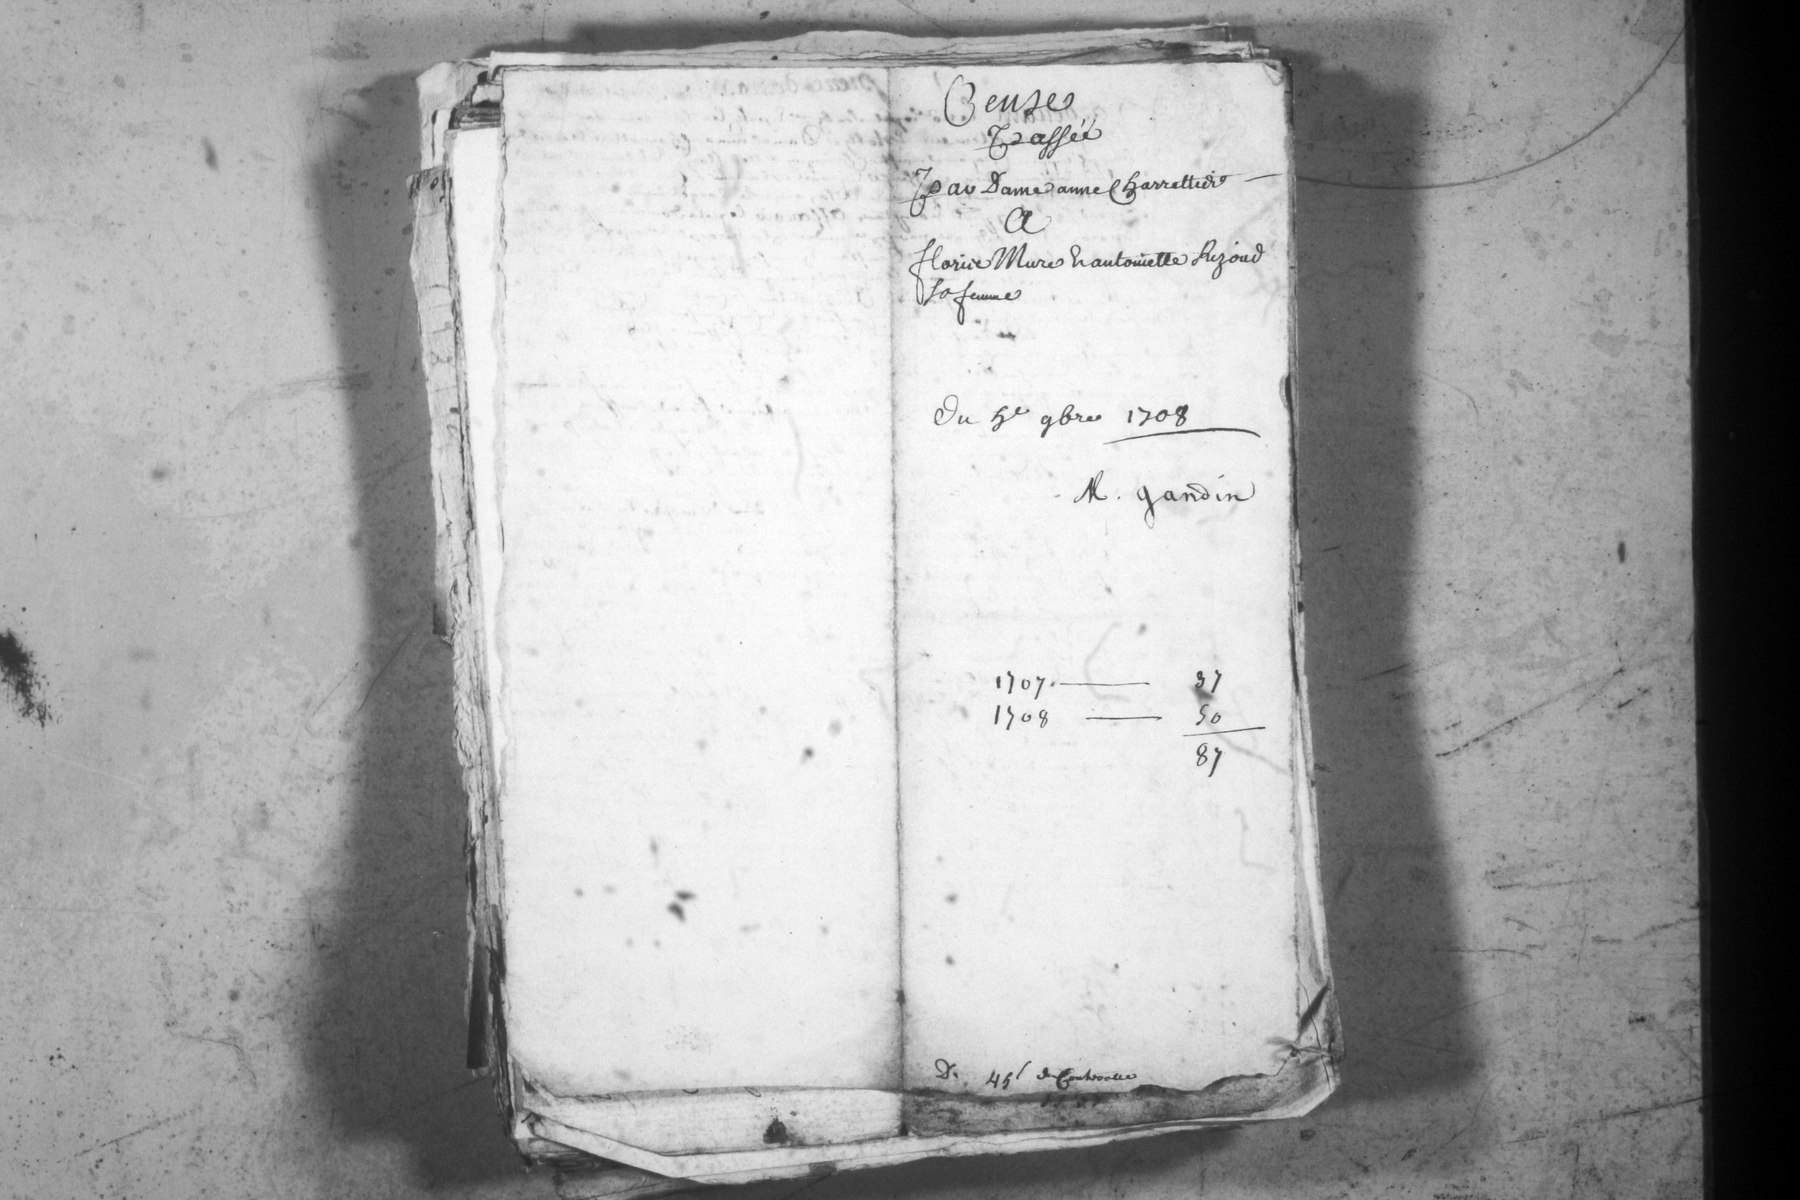 Cense
Passée
Par Dame anne Charrettier
A
florix Mure & antoinette Rizoud
sa femme
Du 5e 9bre 1708
M. gandin
1707. — 37
1708 — 50
87
D. 45s de Controolle